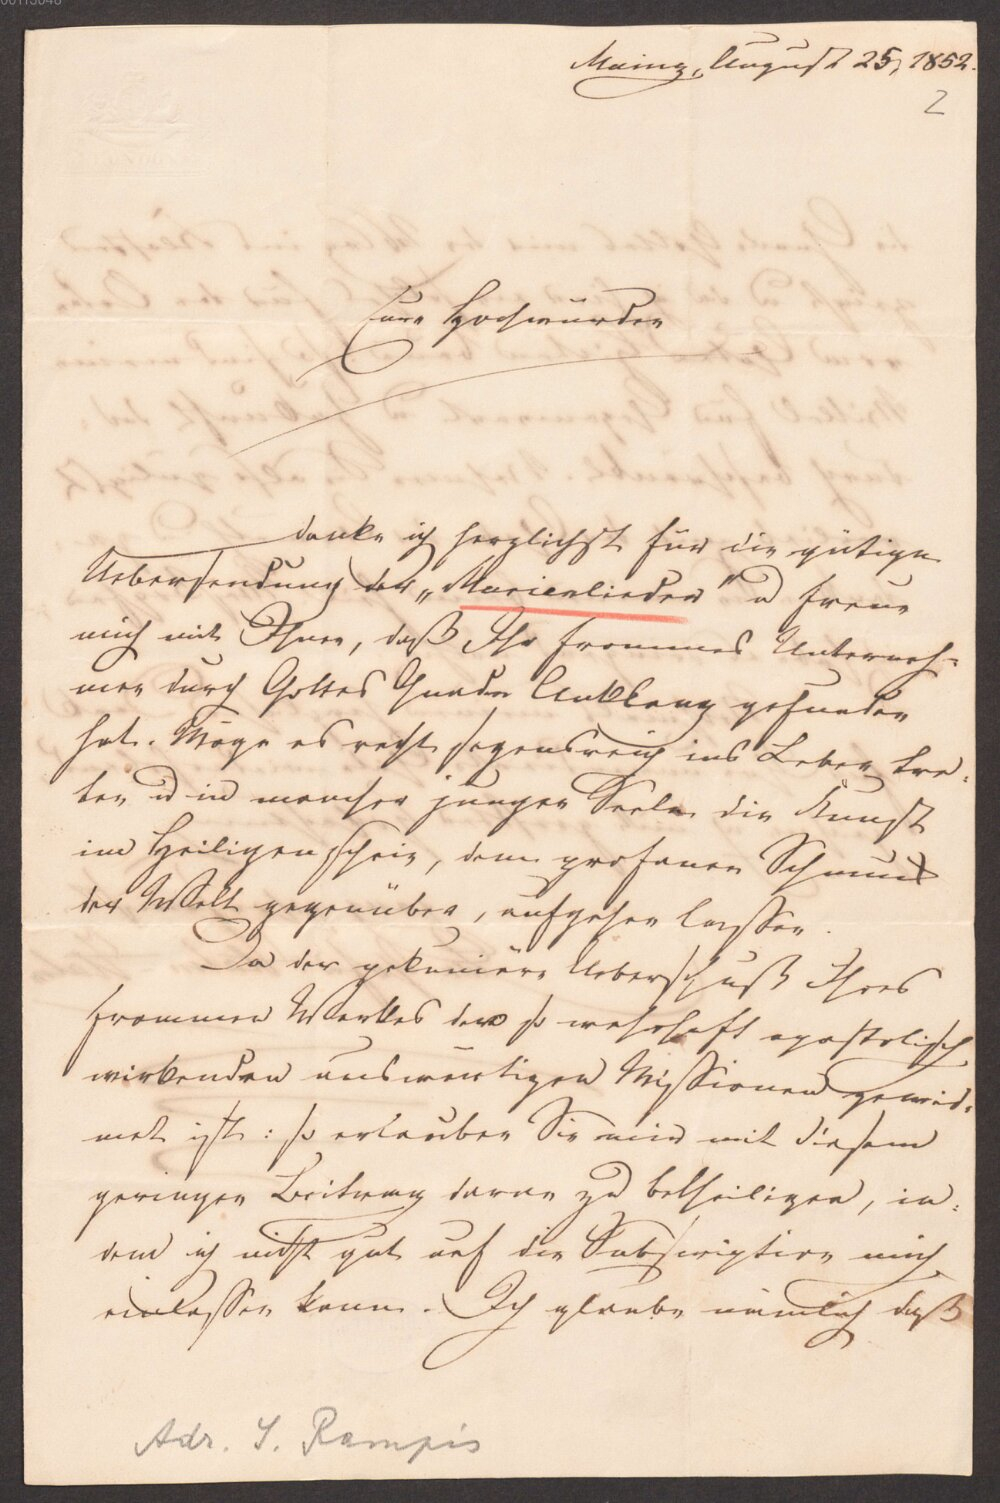 00113048
Mainz, August 25, 1852.
2
Eure Hochwürden
danke ich herzlichst für die gütige
Uebersendung der „Marienlieder" u freue
mich mit Ihnen, daß Ihr frommes Unterneh-
men durch Gottes Gnaden Anklang gefunden
hat. Möge es recht segensreich ins Leben tre-
ten u in mancher jungen Seele die Kunst
im Heiligenschein, dem profanen Schmuck
der Welt gegenüber, aufgehen lassen.
Da der pekuniäre Ueberschuß Ihres
frommen Werkes den so wahrhaft apostolisch
wirkenden auswärtigen Missionen gewid-
met ist: so erlauben Sie mir mit diesem
geringen Beitrag daran zu betheiligen, in-
dem ich nicht gut auf die Subscription mich
einlassen kann. Ich glaube nämlich daß
Adr. S. Rampis